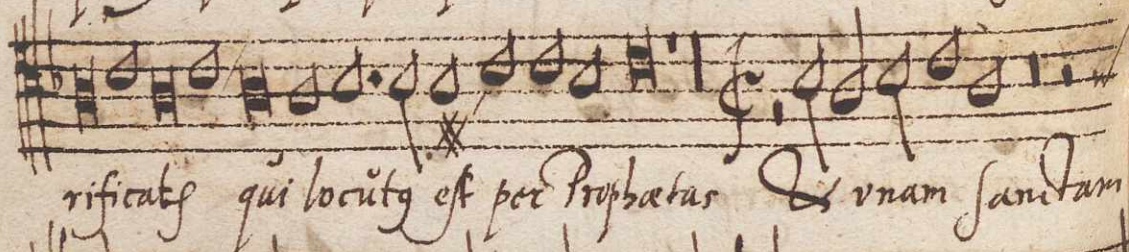 rificatꝭ qui locutꝰ est per Prophætas & vnam sanctam